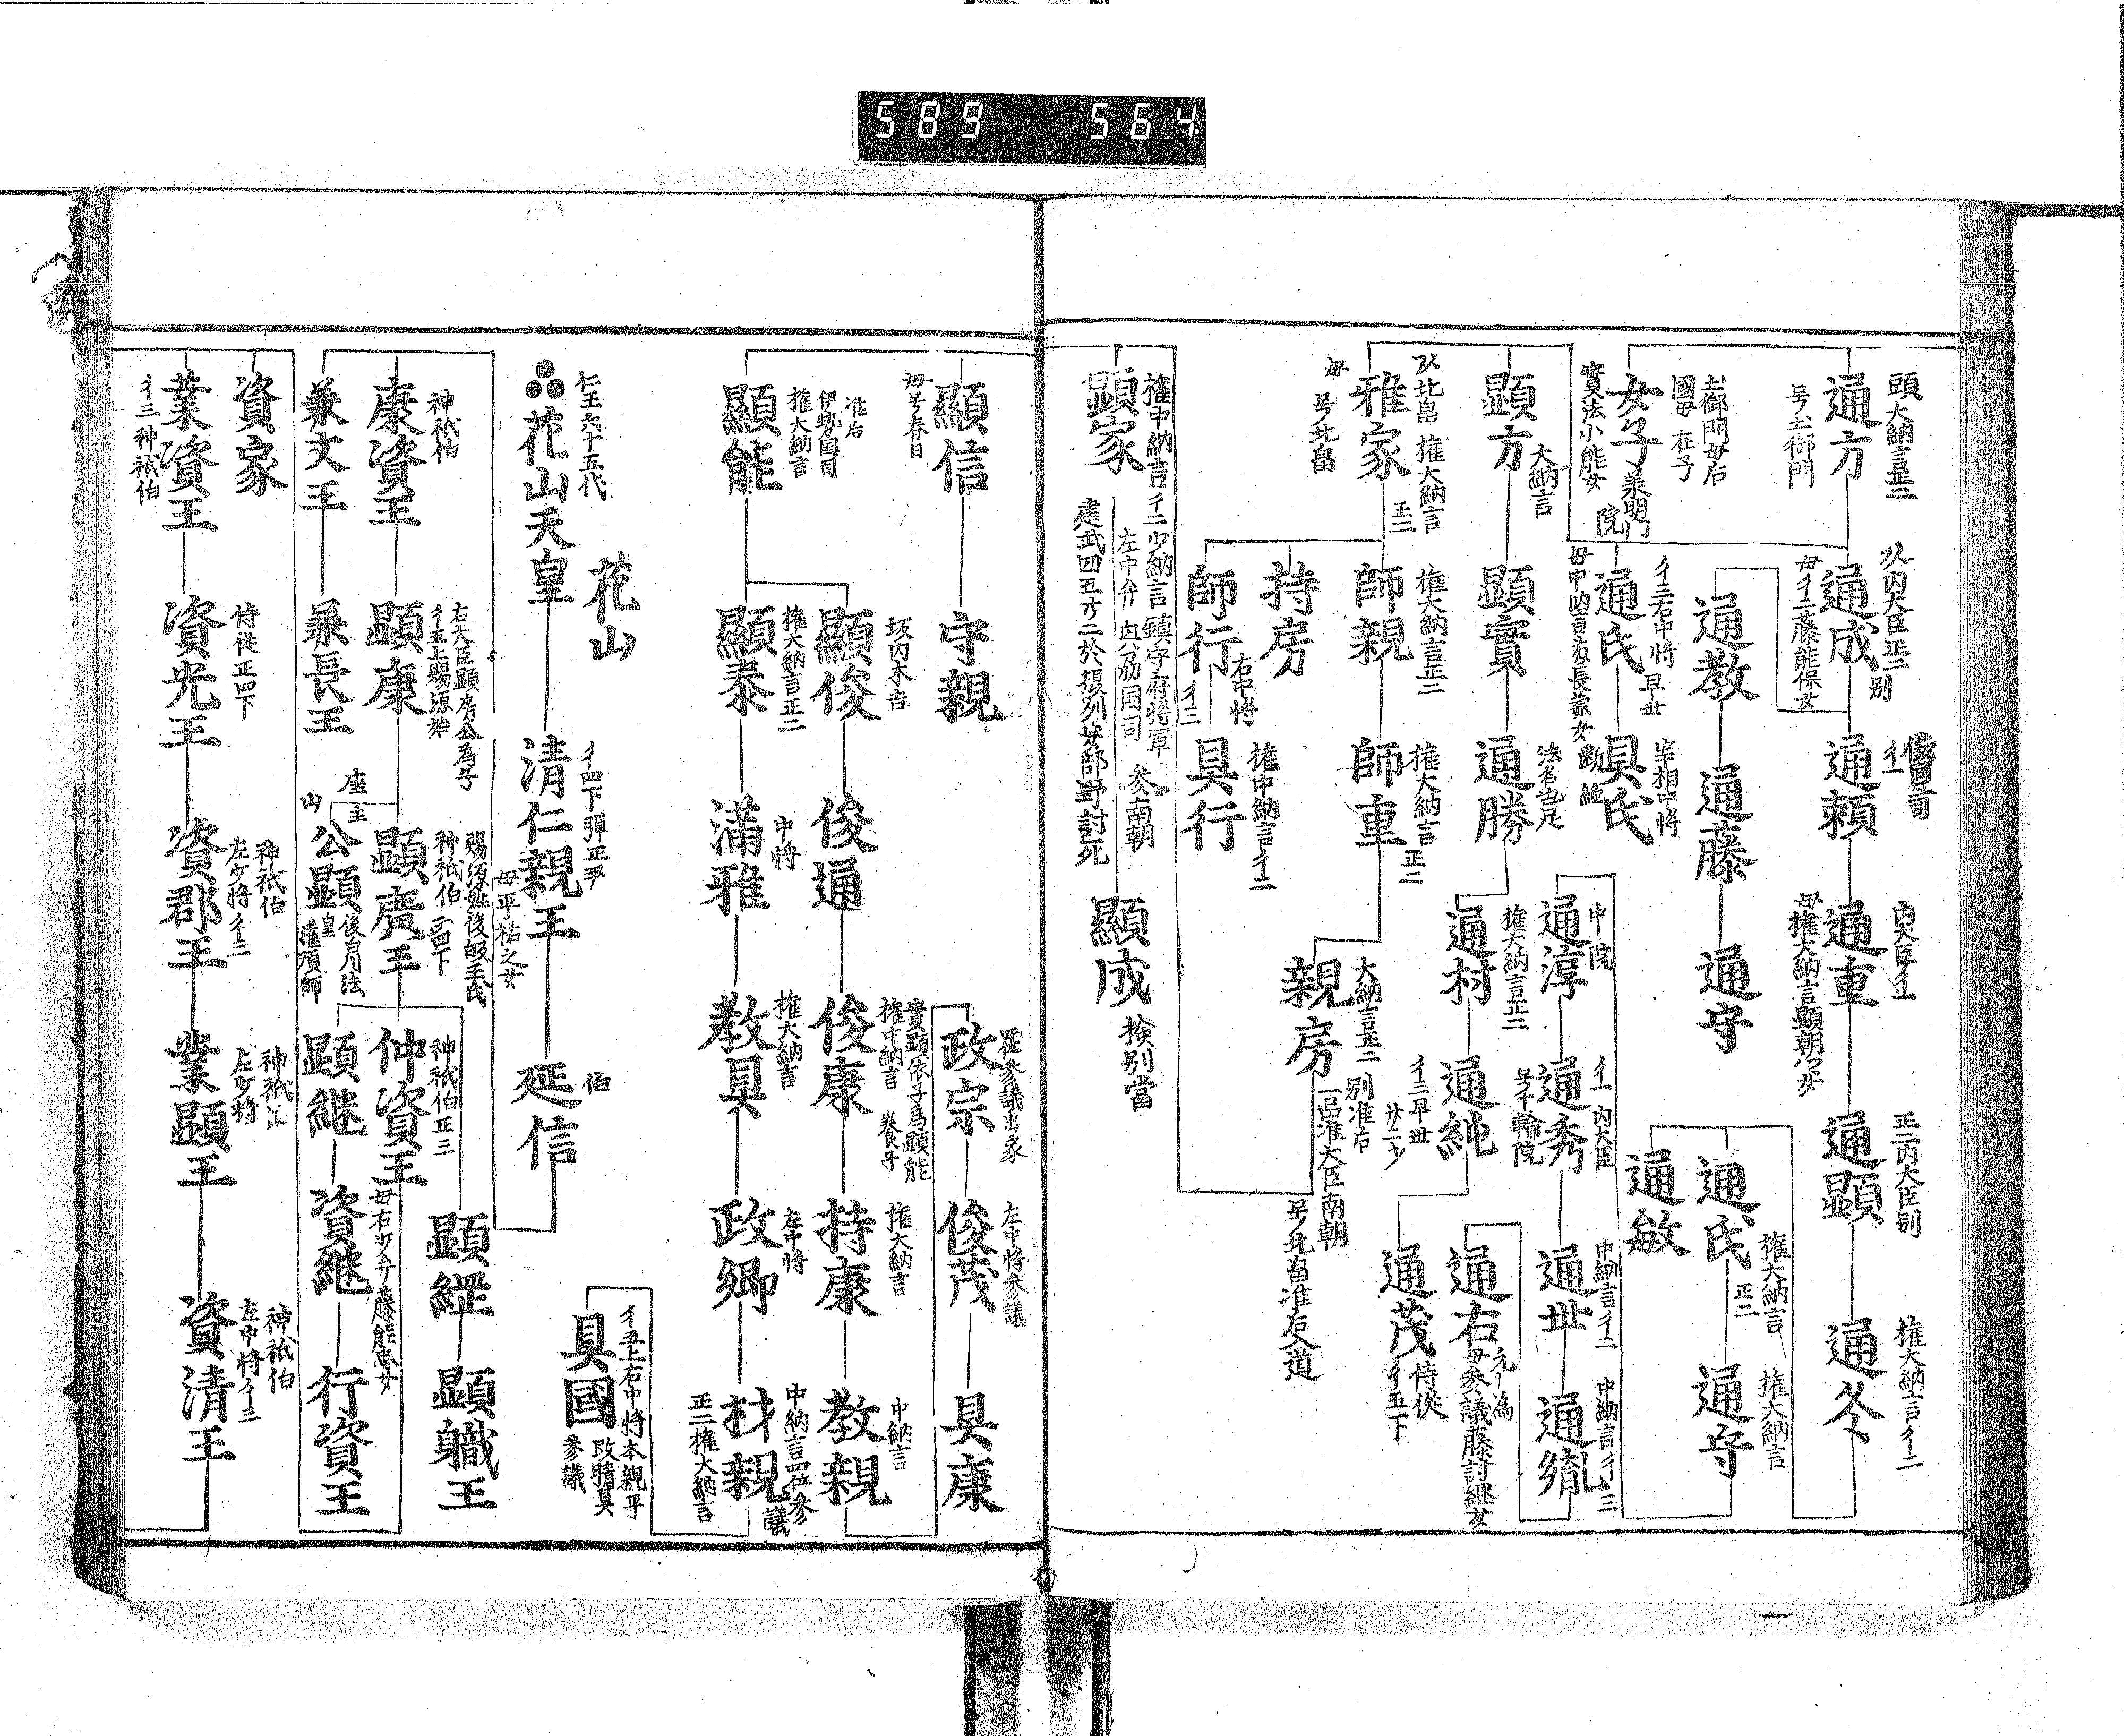 589 564
頭大納言正二
通方
号土御門
土御門母后
國母 在子
女子
義明門
院
實法小能女
内大臣正二別
通成
母イ二藤能保女
通教
通藤
通守
イ三右中将 早世
通氏
宰相中将
具氏
断絶
通頼
内大臣イ一
通重
母權大納言顯朝女
正二内大臣別
通顯
權大納言イ二
通冬
權大納言
正二
通氏
權大納言
通守
通敏
大納言
顕方
顕實
法名也足
通勝
權大納言正二
通村
イ三早世
廿二才
通純
中院
通淳
イ一 内大臣
通秀
号十輪院
中納言イ二
通世
中納言イ三
通胤
元為
通右
母参議藤討継女
通茂
侍従
イ五下
北畠 權大納言
正二
雅家
母
号北畠
權大納言正二
師親
權大納言
正二
師重
持房
師行
右中将
イ三
權中納言イ二
具行
大納言正二
別准后
親房
一品准大臣南朝
号北畠准后入道
權中納言イ二少納言 鎮守府将軍
左中弁 国司 参南朝
顕家
建武四五廿二於摂列安部野討死
顯成
検別當
顯信
母号春日
守親
准后
伊勢国司
權大納言
顯能
坂内木吉
顯俊
俊通
實顕依子為顕能
權中納言 養子
俊康
權大納言
持康
中納言
教親
正参議出家
政宗
左中将参議
俊茂
具康
權大納言正二
顯泰
中将
満雅
權大納言
教具
左中将
政郷
中納言四位参
議
材親
正二權大納言
イ五上右中将本親平
改晴具
具國
参議
花山
仁王六十五代
花山天皇
イ四下弾正尹
清仁親王
母平祐之女
伯
延信
神祇伯
康資王
右大臣顕房公為子
イ五上賜源姓
顕康
賜源姓後皈王氏
神祇伯
四下
顕廣王
神祇伯正三
仲資王
母右少弁藤能忠女
顕継
資継
行資王
顕経
顕職王
座主
山
公顕
後月法
皇
灌頂師
兼文王
兼長王
資家
業資王
イ三神祇伯
侍従正四下
資光王
神祇伯
左少将イ二
資郡王
神祇正
左少将
業顕王
神祇伯
左中将イ三
資清王